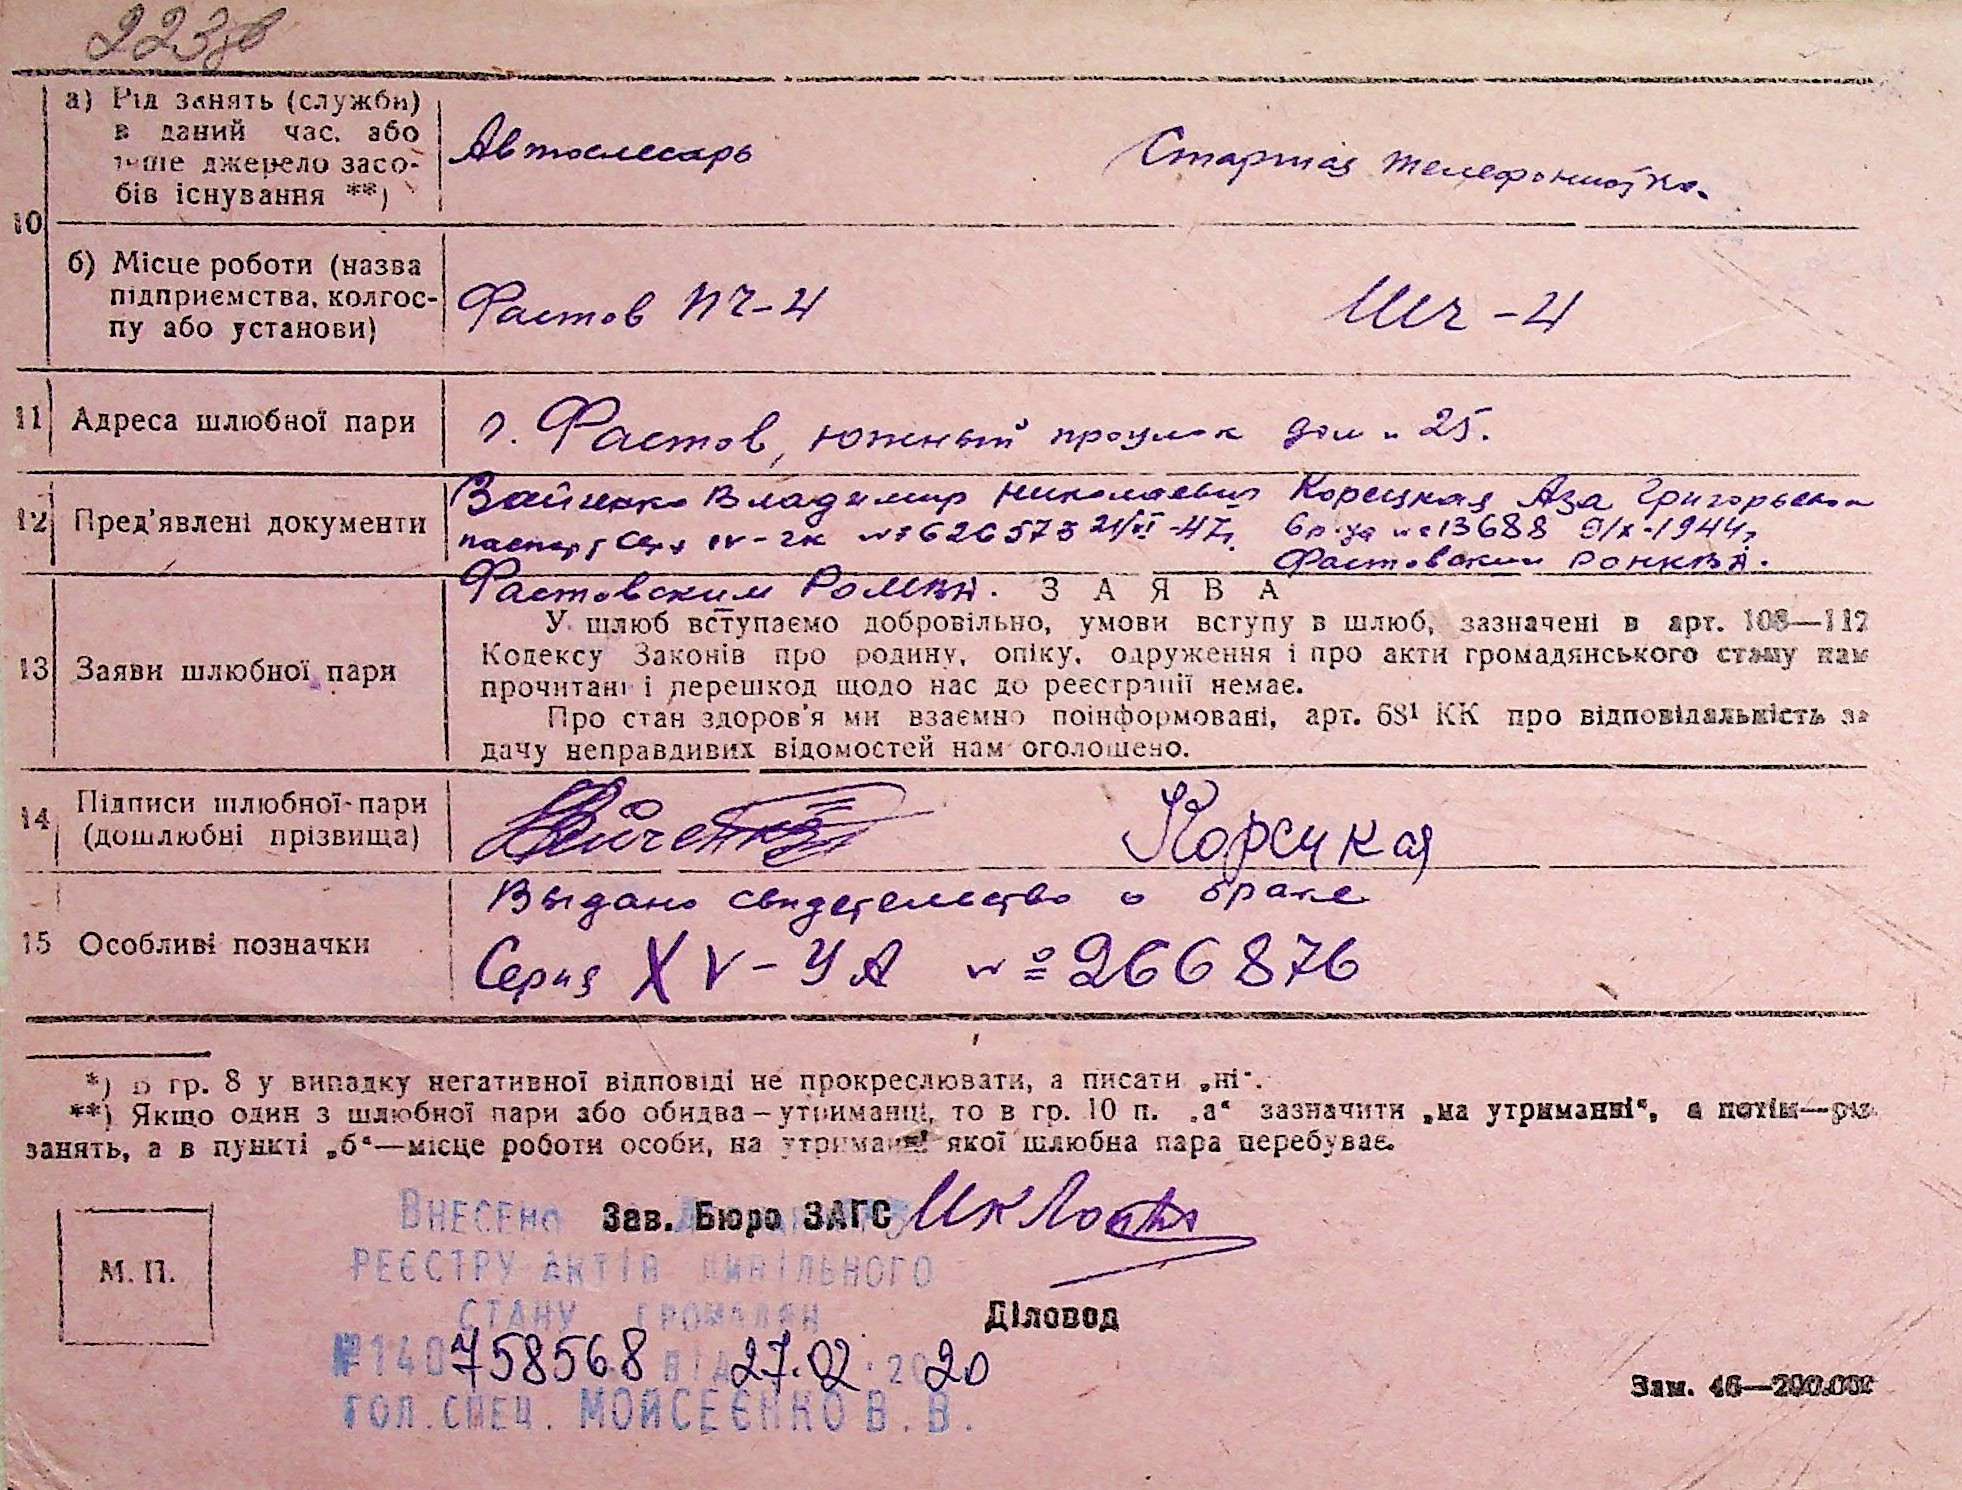 223
10
а) Рід занять (служби)
в даний час, або
інше джерело засо-
бів існування **)
Автослесарь
Старшая телефонистка.
б) Місце роботи (назва
підприємства, колгос-
пу або установи)
Фастов ПЧ-4
ШЧ-4
11 Адреса шлюбної пари
г. Фастов, южный проулок дом № 25.
12 Пред'явлені документи
Войченко Владимир Николаевич
паспорт Серя IV-гк № 626573 21/VI-47г.
Фастовским РОМВД.
Корецкая Аза Григорьевна
№ 13688 9/X-1944г
Фастовским
13 Заяви шлюбної пари
ЗАЯВА
У шлюб вступаємо добровільно, умови вступу в шлюб, зазначені в арт. 108—112
Кодексу Законів про родину, опіку, одруження і про акти громадянського стану нам
прочитані і перешкод щодо нас до реєстрації немає.
Про стан здоров'я ми взаємно поінформовані, арт. 68¹ КК про відповідальність за
дачу неправдивих відомостей нам оголошено.
14 Підписи шлюбної пари
(дошлюбні прізвища)
Войченко
Корецкая
15 Особливі позначки
Выдано свидетельство о браке
Серия XV-УА № 266876
*) В гр. 8 у випадку негативної відповіді не прокреслювати, а писати „ні“.
**) Якщо один з шлюбної пари або обидва — утриманці, то в гр. 10 п. „а“ зазначити „на утриманні“, а потім — рід
занять, а в пункті „б“ — місце роботи особи, на утриманні якої шлюбна пара перебуває.
М. П.
Зав. Бюро ЗАГС
Діловод
ВНЕСЕНО ДО ДЕРЖАВНОГО
РЕЄСТРУ АКТІВ ЦИВІЛЬНОГО
СТАНУ ГРОМАДЯН
№ 140758568 від 27.02.2020
ГОЛ. СПЕЦ. МОЙСЕЄНКО В. В.
Зам. 46—200.000